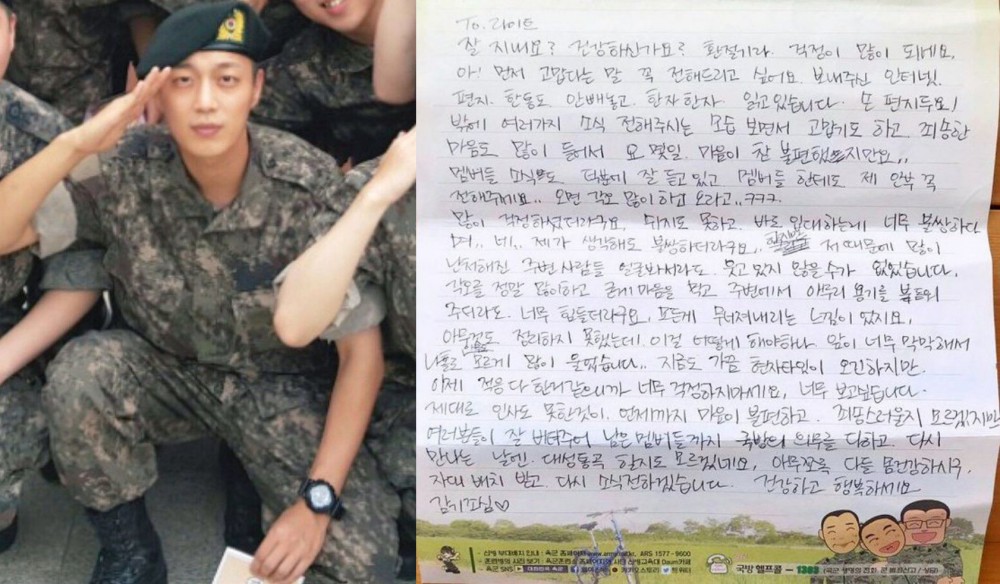 To. 라이트
잘 지내요? 건강하신가요? 환절기라. 걱정이 많이 되네요.
아! 먼저 고맙다는 말 꼭 전해드리고 싶어요. 보내주신 인터넷.
편지. 한통도 안빼놓고. 한자한자 읽고있습니다. 손 편지두요!
밖에 여러가지 소식 전해주시는 모습 보면서 고맙기도 하고. 죄송한
마음도 많이 들어서 요 몇일. 마음이 참 불편했었지만요..
멤버들 소식도 덕분에 잘 듣고있고 멤버들 한테도 제 안부 꼭
전해주세요.. 오면 각오 많이하고 오라고..ㅋㅋㅋ.
많이 걱정하셨더라구요. 쉬지도 못하고. 바로 입대하는게 너무 불쌍하다
며.. 네!.. 제가 생각해도 불쌍하더라구요. 저 때문에 많이
난처해진 주변 사람들 얼굴봐서라도 웃고 있지 않을수가 없었습니다.
각오를 정말 많이하고 굳게 마음을 먹고. 주변에서 아무리 용기를 북돋아
주더라도. 너무 힘들더라구요. 모든게 무너져내리는 느낌이 있지요.
아무것도 정리하지 못했는데. 이걸 어떻게 해야하나 앞이 너무 막막해서
나도 모르게 많이 울었습니다.. 지금도 가끔 현자타임이 오긴하지만.
이제 적응 다 한거같으니까 너무 걱정하지마세요. 너무 보고싶습니다.
제대로 인사도 못한것이. 언제까지 마음이 불편하고. 죄송스러울지 모르겠지만
여러분들이 잘 버텨주어 남은 멤버들까지 국방의 의무를 다하고. 다시
만나는 날엔. 대성통곡 할지도 모르겠네요. 아무쪼록 다들 몸건강하시구.
자대 배치 받고. 다시 소식전하겠습니다. 건강하고 행복하세요
감기조심♡
신병 부대배치 안내 : 육군 홈페이지 ARS 1577-9600
육군 SNS 대한민국 육군 카카오스토리 트위터
국방 헬프콜 1303